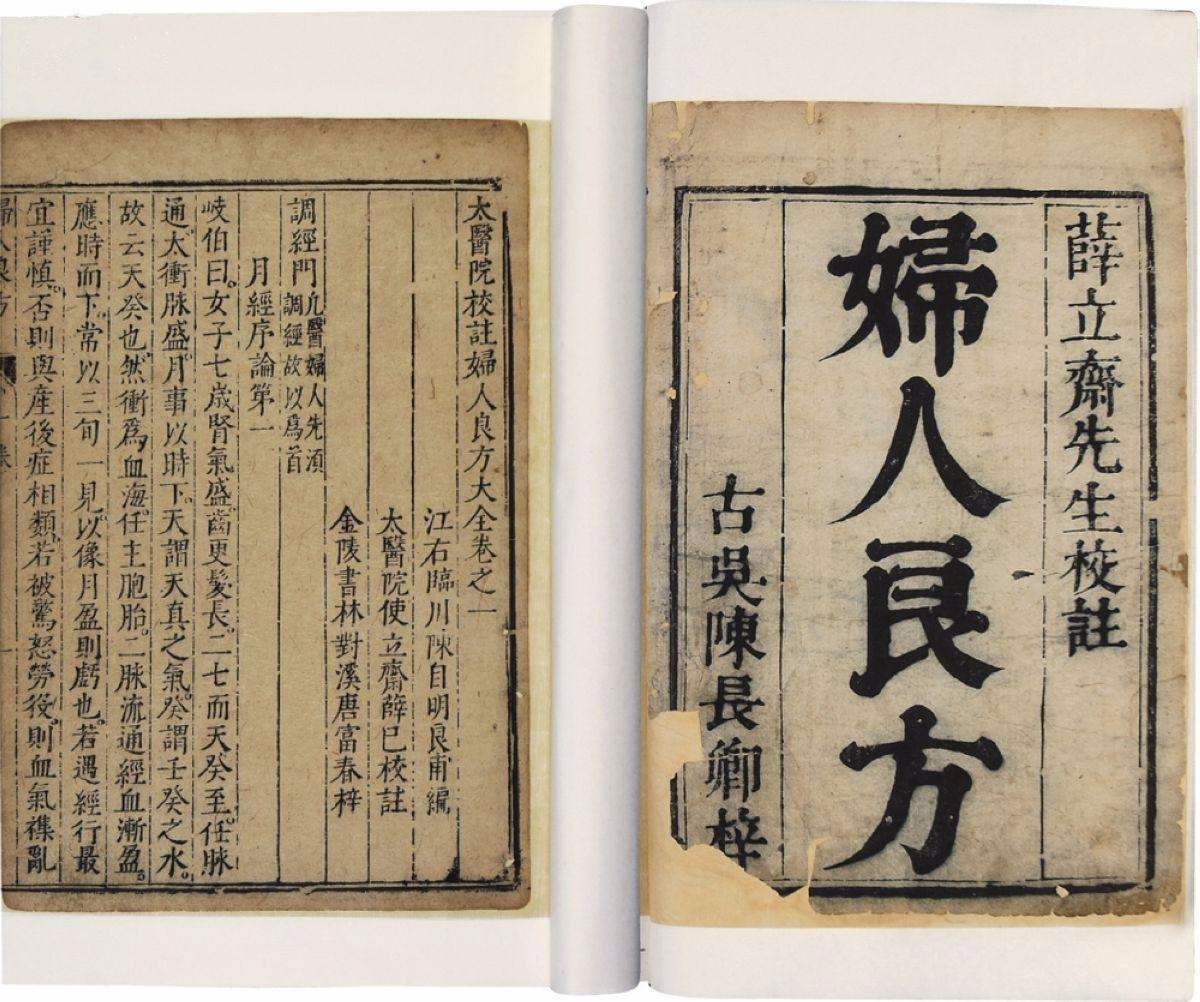 薛立齋先生校註
婦人良方
古吳陳長卿梓
太醫院校註婦人良方大全卷之一
江右臨川陳自明良甫編
太醫院使立齋薛已校註
金陵書林對溪唐富春梓
調經門凢醫婦人先須
調經故以爲首
月經序論第一
岐伯曰女子七歲腎氣盛齒更髮長二七而天癸至任脉
通太衝脉盛月事以時下天謂天真之氣癸謂壬癸之水
故云天癸也然衝爲血海任主胞胎二脉流通經血漸盈
應時而下常以三旬一見以像月盈則虧也若遇經行最
宜謹慎否則與產後症相類若被驚怒勞役則血氣襍亂
婦人良方